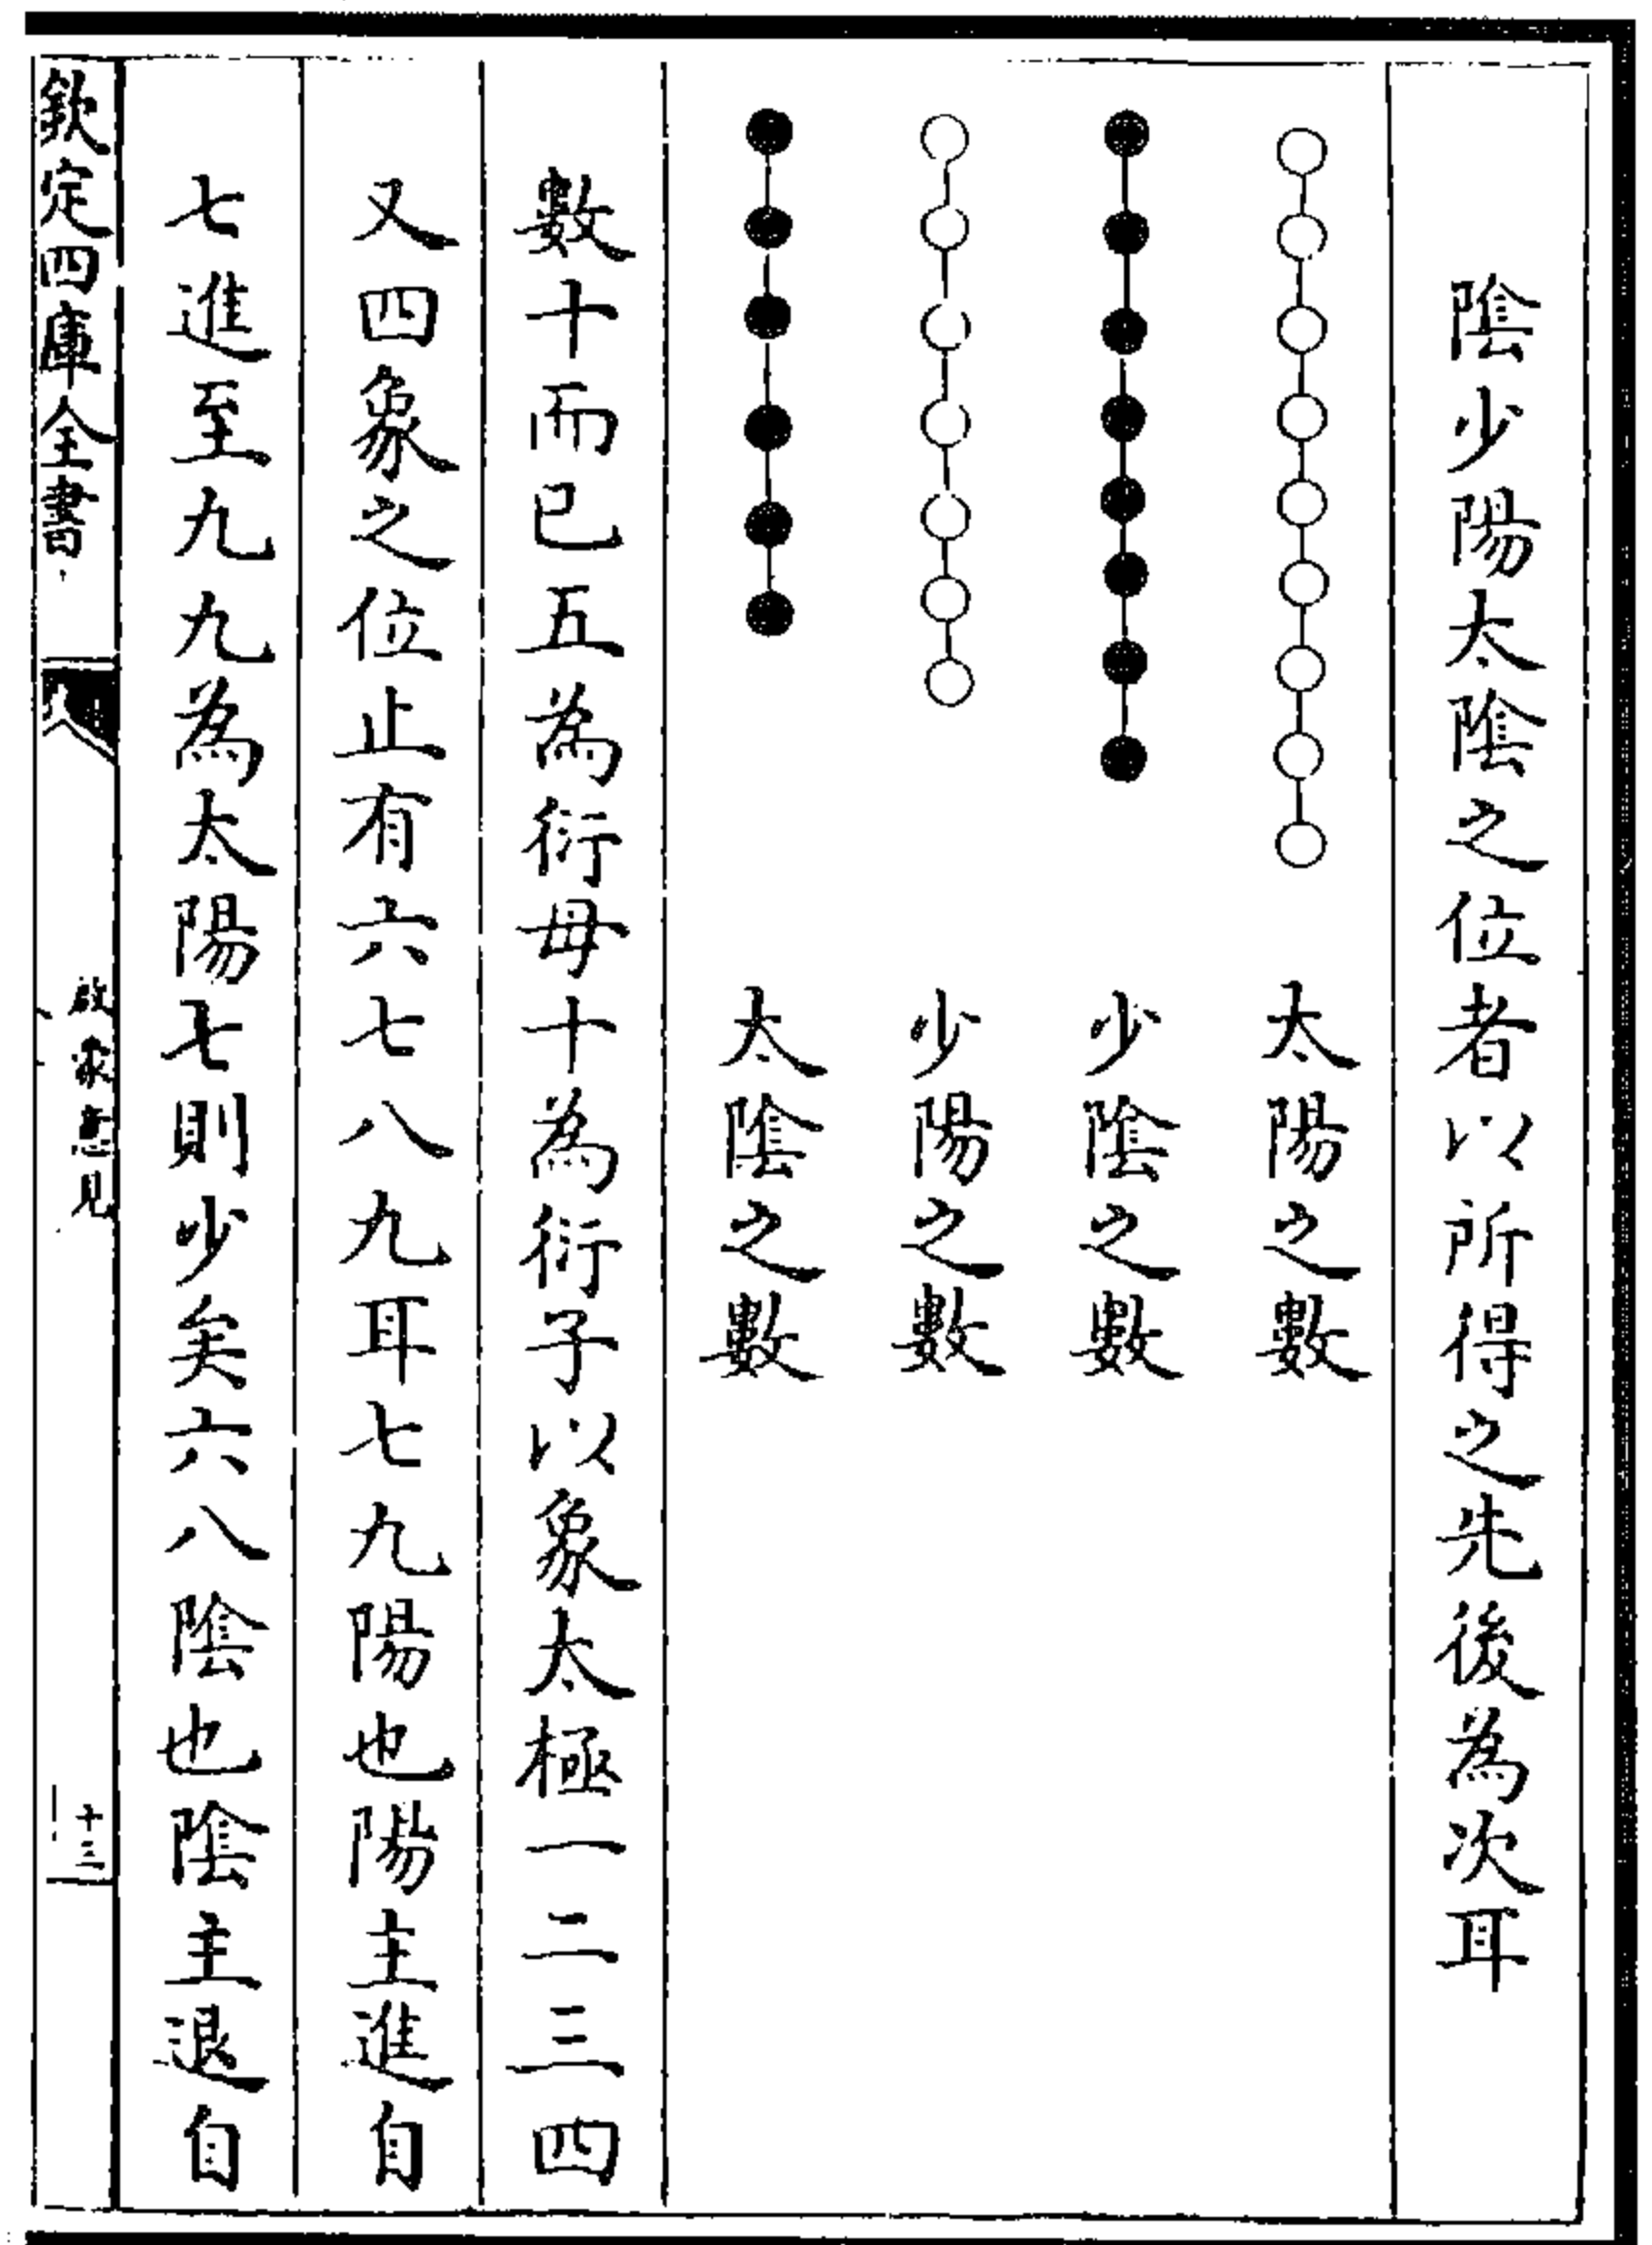 陰少陽太陰之位者以所得之先後為次耳
太陽之數
少陰之數
少陽之數
太陰之數
數十而已五為衍母十為衍子以象太極一二三四
又四象之位止有六七八九耳七九陽也陽主進自
七進至九九為太陽七則少矣六八陰也陰主退自
欽定四庫全書
啟蒙意見
十三